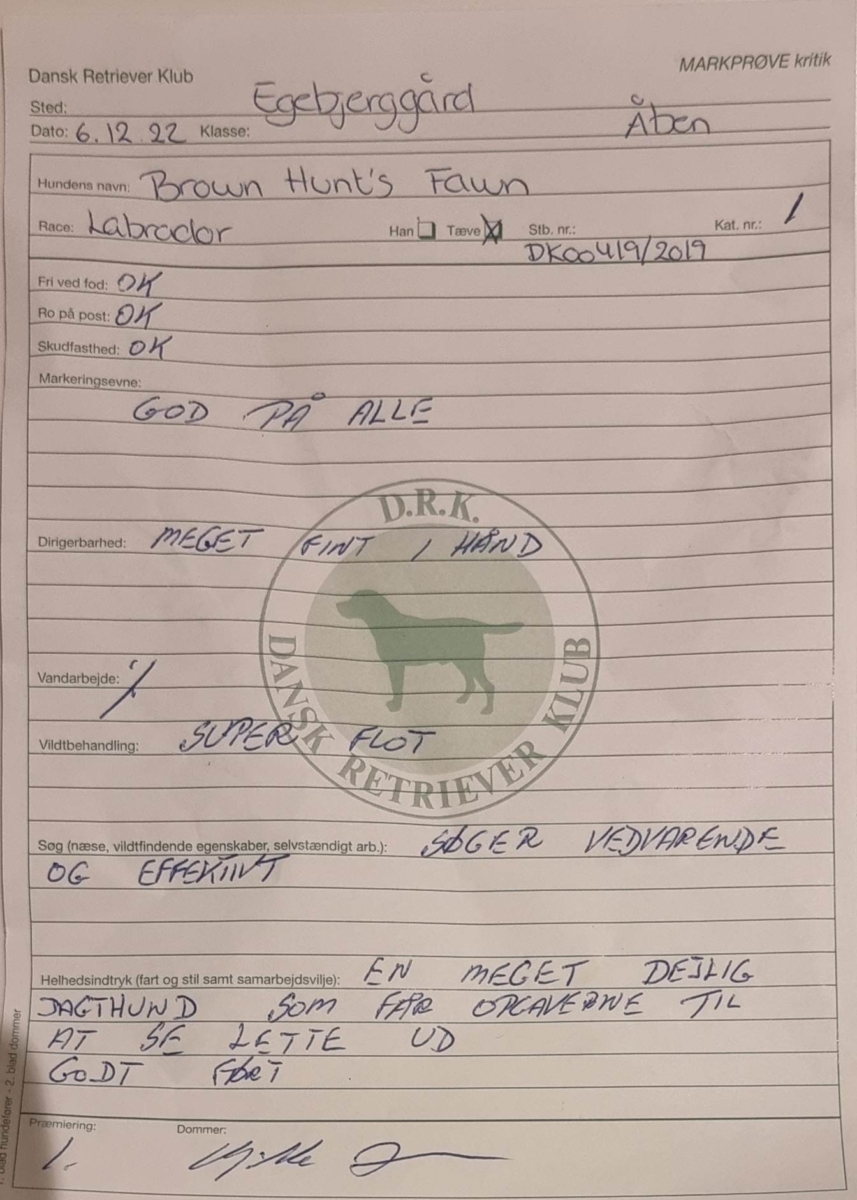 Dansk Retriever Klub
MARKPRØVE kritik
Sted: Egebjerggård
Dato: 6.12.22 Klasse: Åben
Hundens navn: Brown Hunt's Fawn
Race: Labrador Han Tæve X Stb. nr.: DK00419/2019 Kat. nr.: 1
Fri ved fod: OK
Ro på post: OK
Skudfasthed: OK
Markeringsevne:
GOD PÅ ALLE
D.R.K.
Dirigerbarhed: MEGET FINT I HÅND
DANSK RETRIEVER KLUB
Vandarbejde: %
Vildtbehandling: SUPER FLOT
Søg (næse, vildtfindende egenskaber, selvstændigt arb.): SØGER VEDVARENDE
OG EFFEKTIVT
Helhedsindtryk (fart og stil samt samarbejdsvilje): EN MEGET DEJLIG
JAGTHUND SOM FÅR OPGAVERNE TIL
AT SE LETTE UD
GODT FØRT
Præmiering: 1.
Dommer:
blad hundefører - 2. blad dommer